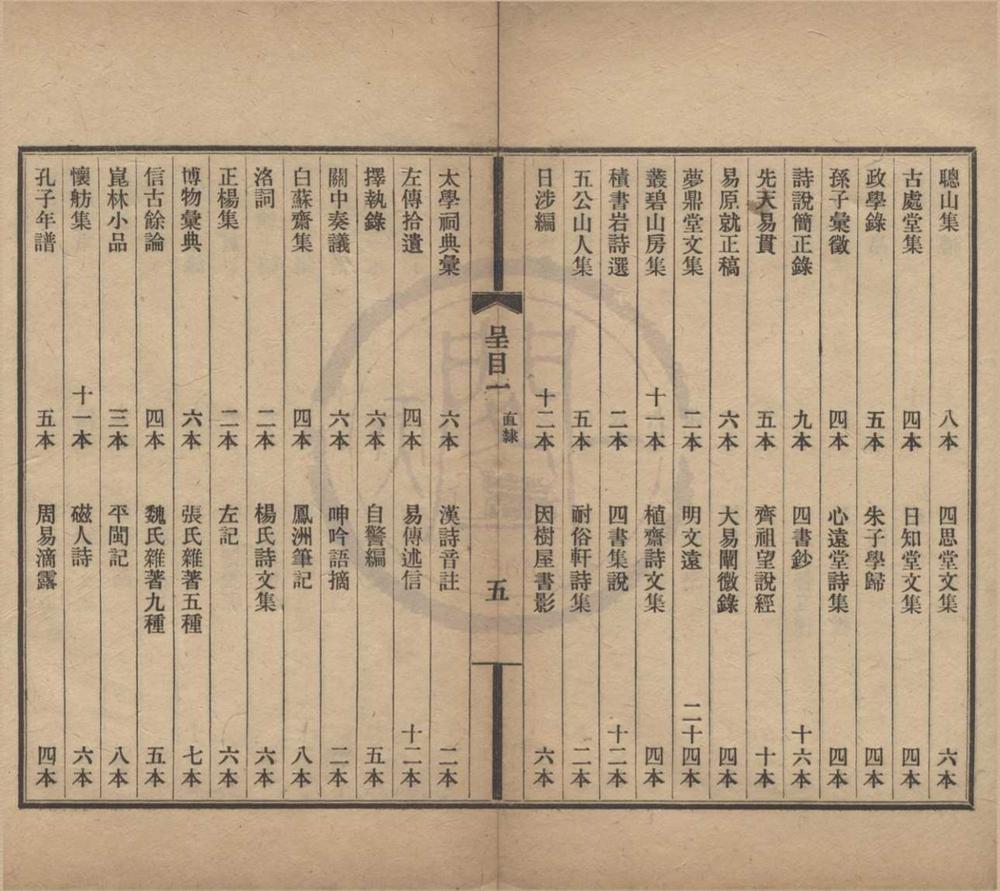 聰山集　八本　四思堂文集　六本
古處堂集　四本　日知堂文集　四本
政學錄　五本　朱子學歸　四本
孫子彙徵　四本　心遠堂詩集　四本
詩說簡正錄　九本　四書鈔　十六本
先天易貫　五本　齊祖望說經　十本
易原就正稿　六本　大易闡微錄　四本
夢鼎堂文集　二本　明文遠　二十四本
叢碧山房集　十一本　植齋詩文集　四本
積書岩詩選　二本　四書集說　十二本
五公山人集　五本　耐俗軒詩集　二本
日涉編　十二本　因樹屋書影　六本
呈目一　直隸　五
太學祠典彙　六本　漢詩音註　二本
左傳拾遺　四本　易傳述信　十二本
擇執錄　六本　自警編　五本
關中奏議　六本　呻吟語摘　二本
白蘇齋集　四本　鳳洲筆記　八本
洛詞　二本　楊氏詩文集　六本
正楊集　二本　左記　六本
博物彙典　六本　張氏雜著五種　七本
信古餘論　四本　魏氏雜著九種　五本
崑林小品　三本　平閩記　八本
懷舫集　十一本　磁人詩　六本
孔子年譜　五本　周易滴露　四本